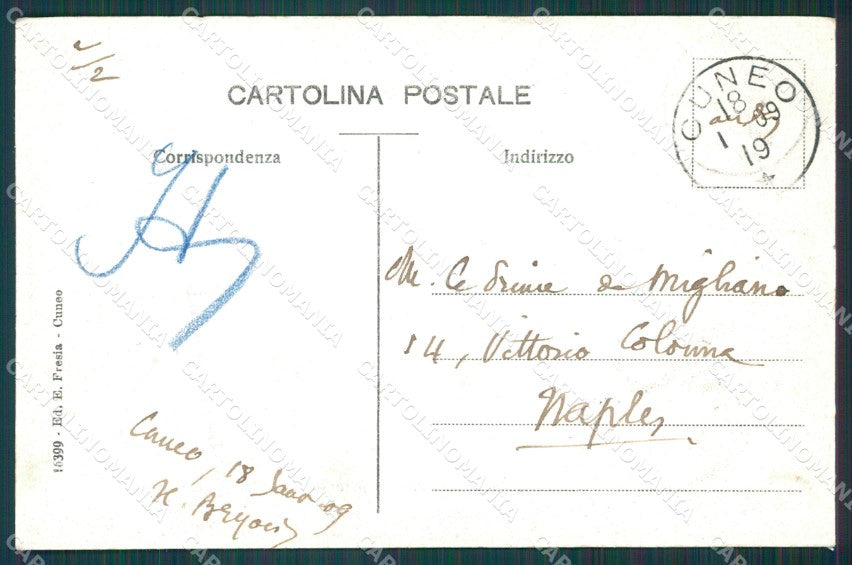 V/2
CARTOLINA POSTALE
CUNEO
18 1 09
19
Corrispondenza
Indirizzo
M. Le Prince de Migliano
14, Vittorio Colonna
Naples
Cuneo, 18 Janv 09
H.
16399 - Ed. E. Fresia - Cuneo
CARTOLINOMANIA